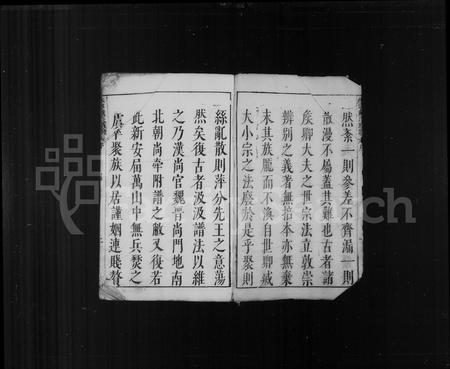 然紊一則參差不齊漏一則
散漫不屬蓋其難也古者諸
侯聊大夫之世宗法立敦崇
辨别之義者無捨本亦無棄
末其族龐而不渙自世聊烕
大小宗之法廢於是乎聚則
絲亂散則萍分先王之意蕩
然矣復古者汲汲譜法以維
之乃漢尚官魏晉尚門地南
北朝尚牽附譜之敝又復若
此新安居萬山中無兵燹之
虞聚族以居謹姻連賤贅